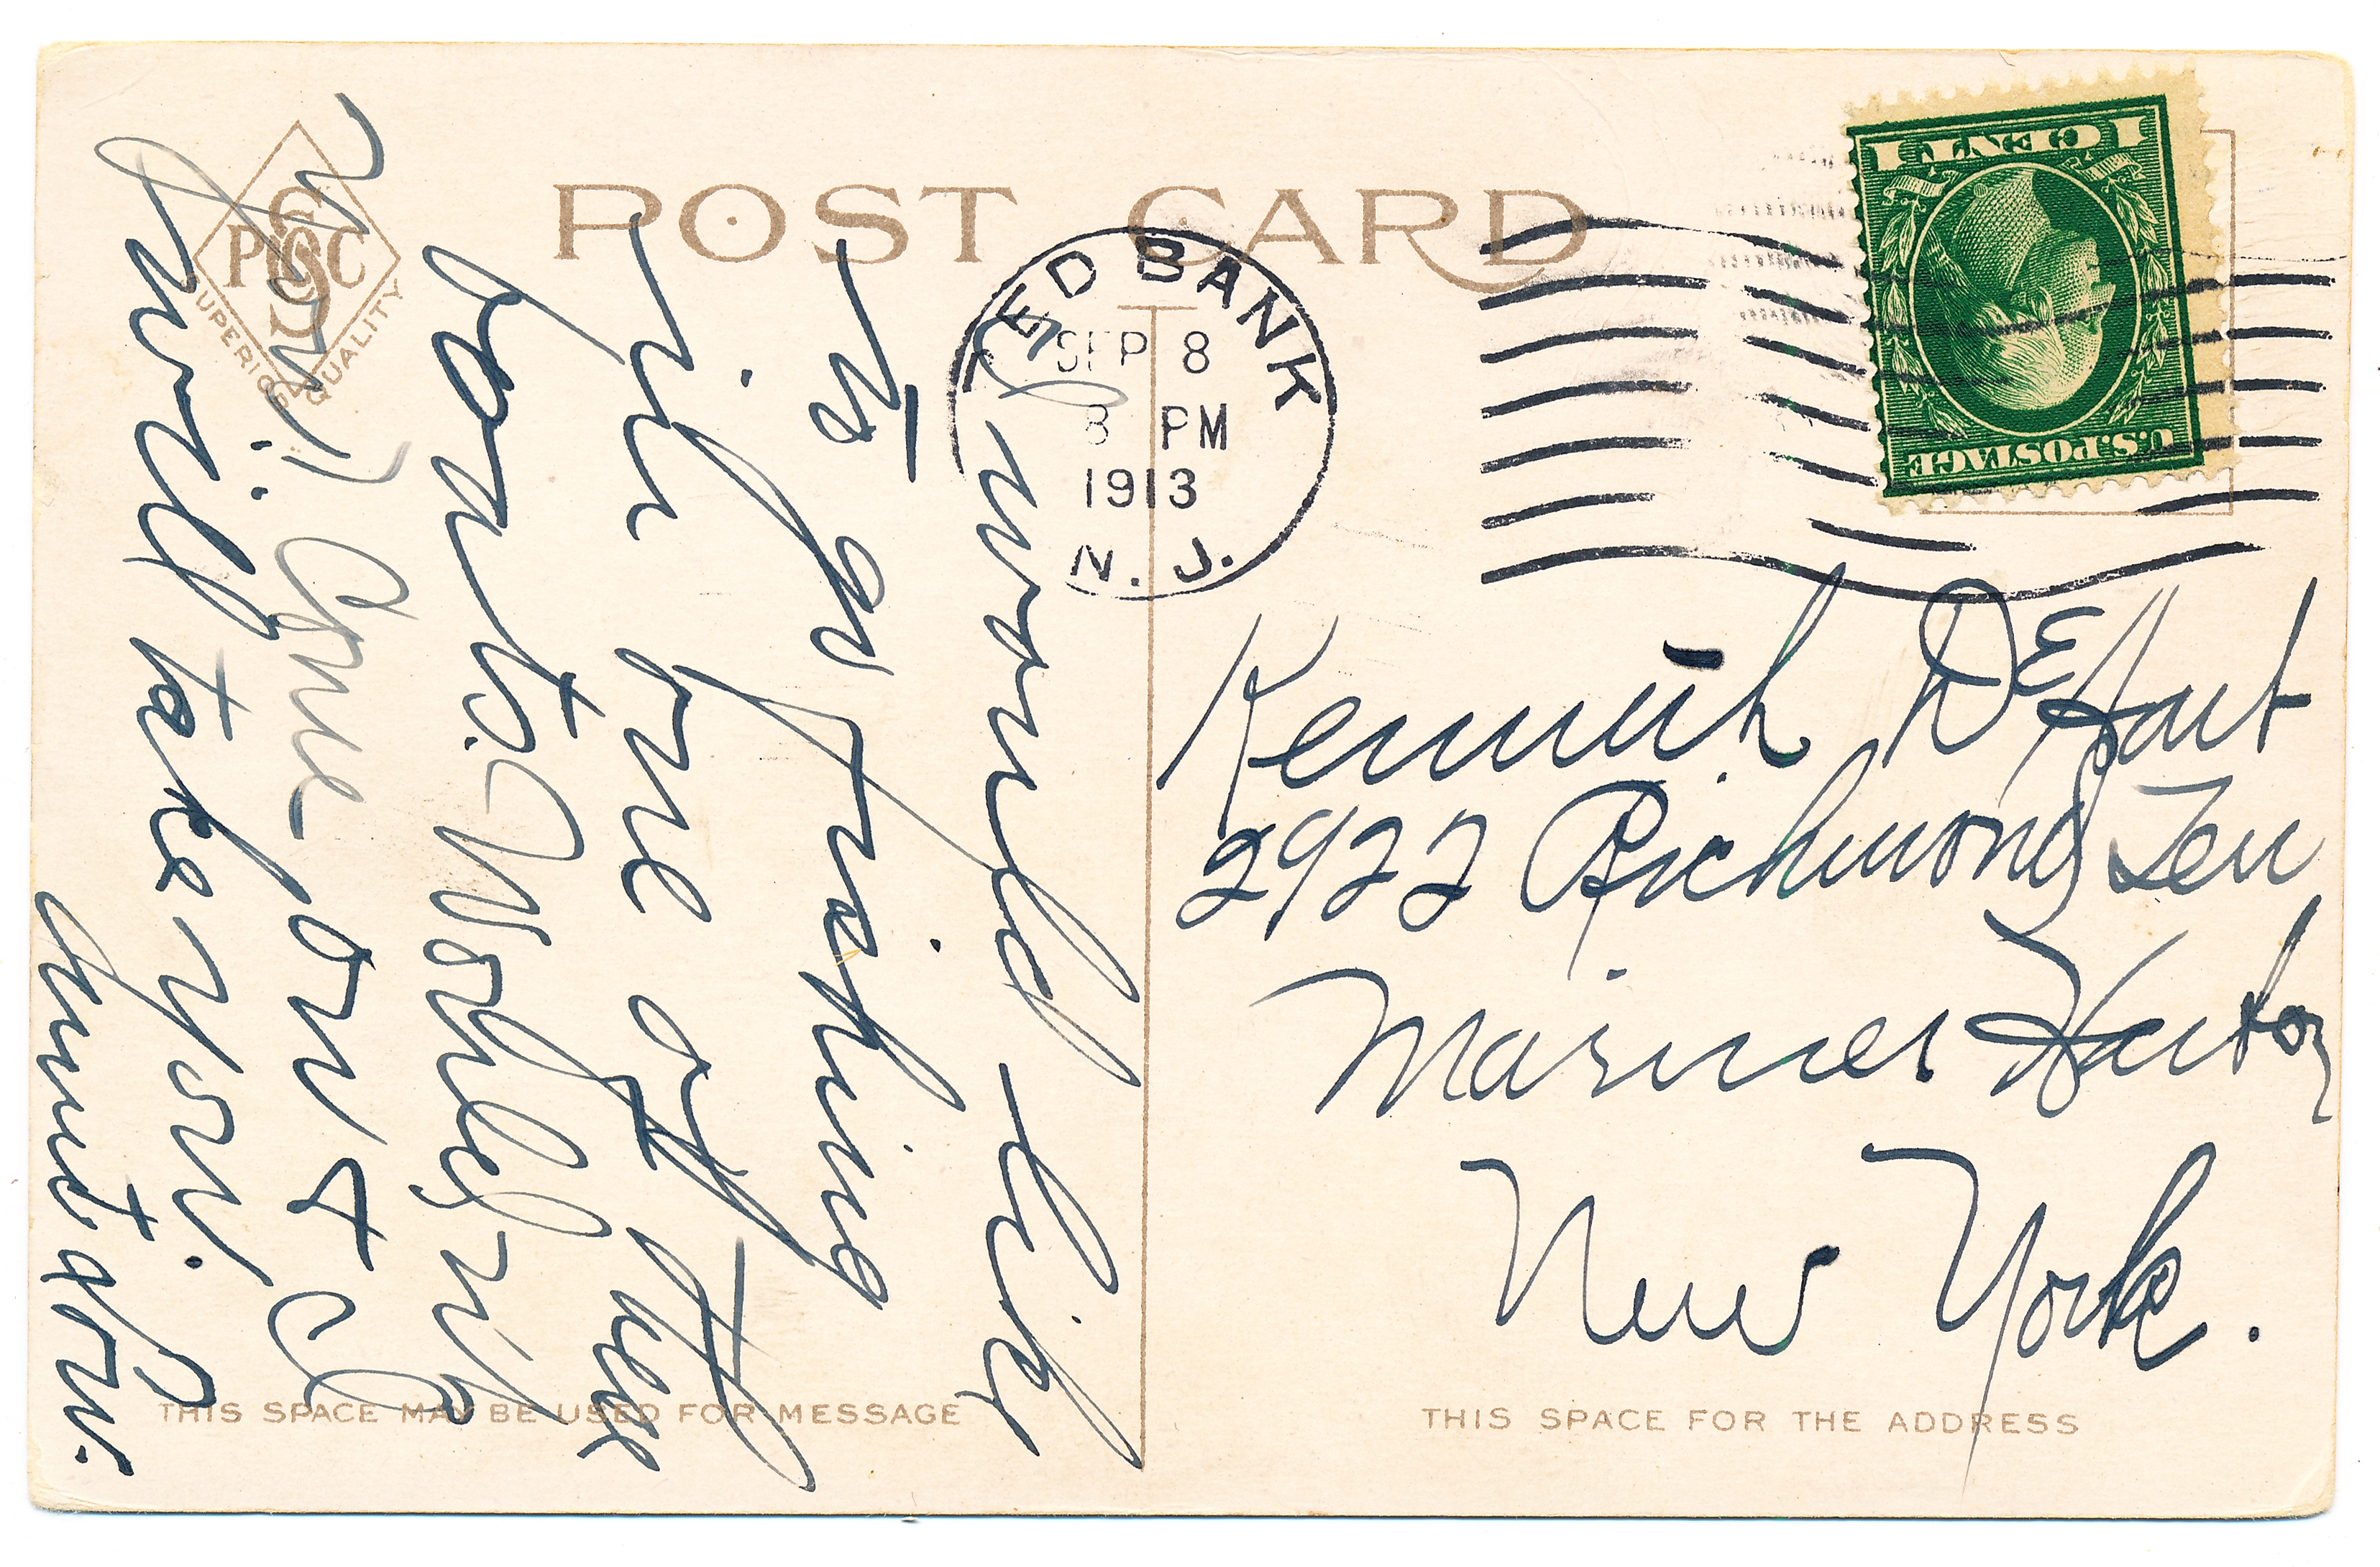 POST CARD
PSC
SUPERIOR QUALITY
U.S. POSTAGE
1 CENT 1
RED BANK
SEP 8
8 PM
1913
N. J.
I would like
to go fishing
in one of these
boats.
you? Come on & I
will take you.
Aunt
Kenneth DeHart
2922 Richmond Terr
Mariner Harbor
New York.
THIS SPACE MAY BE USED FOR MESSAGE
THIS SPACE FOR THE ADDRESS